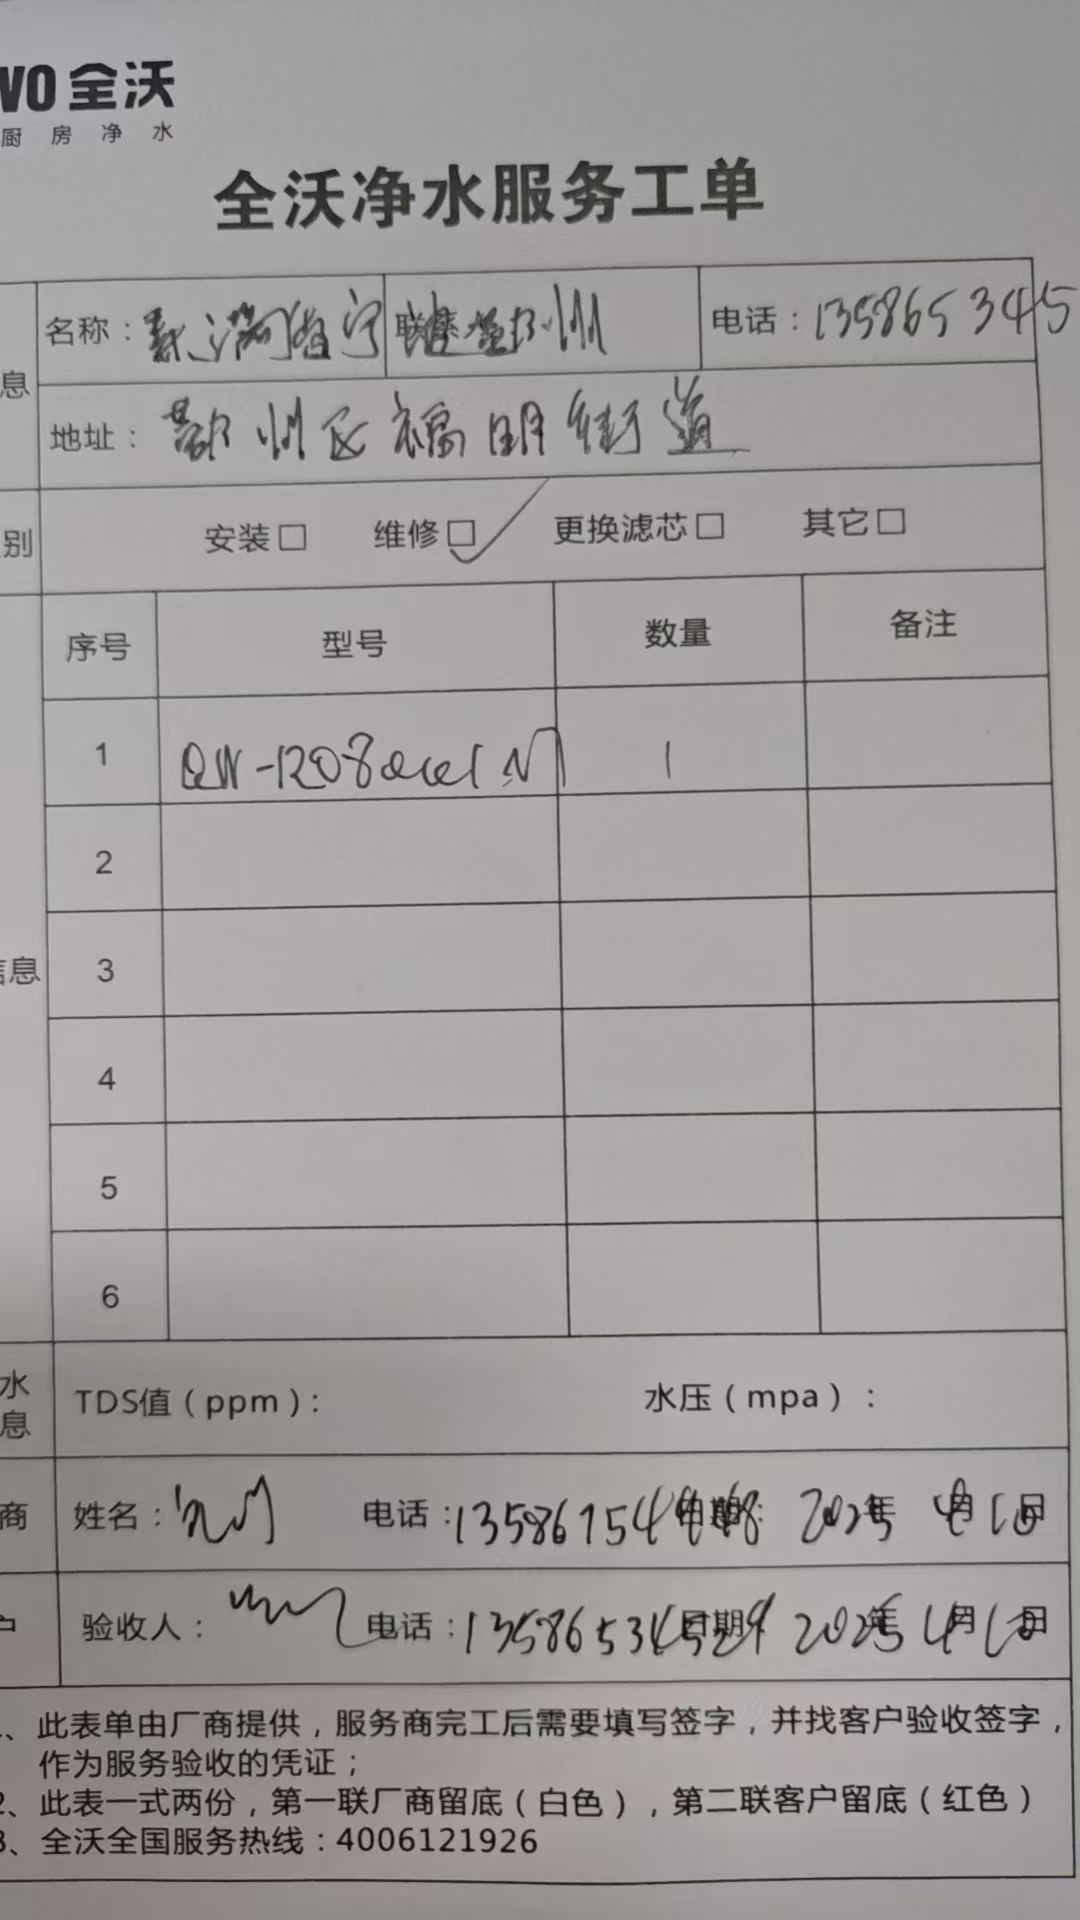 VO全沃
厨房净水
全沃净水服务工单
名称： 联 电话：135865345
息
地址：鄞州区福明街道
别 安装□ 维修□✓ 更换滤芯□ 其它□
序号 型号 数量 备注
1 QW-1208 1
2
信息 3
4
5
6
水息 TDS值（ppm）： 水压（mpa）：
商 姓名： 电话： 日期： 2025年 4月10日
户 验收人： 电话： 日期 2025年4月10日
1、此表单由厂商提供，服务商完工后需要填写签字，并找客户验收签字，
作为服务验收的凭证；
2、此表一式两份，第一联厂商留底（白色），第二联客户留底（红色）
3、全沃全国服务热线：4006121926